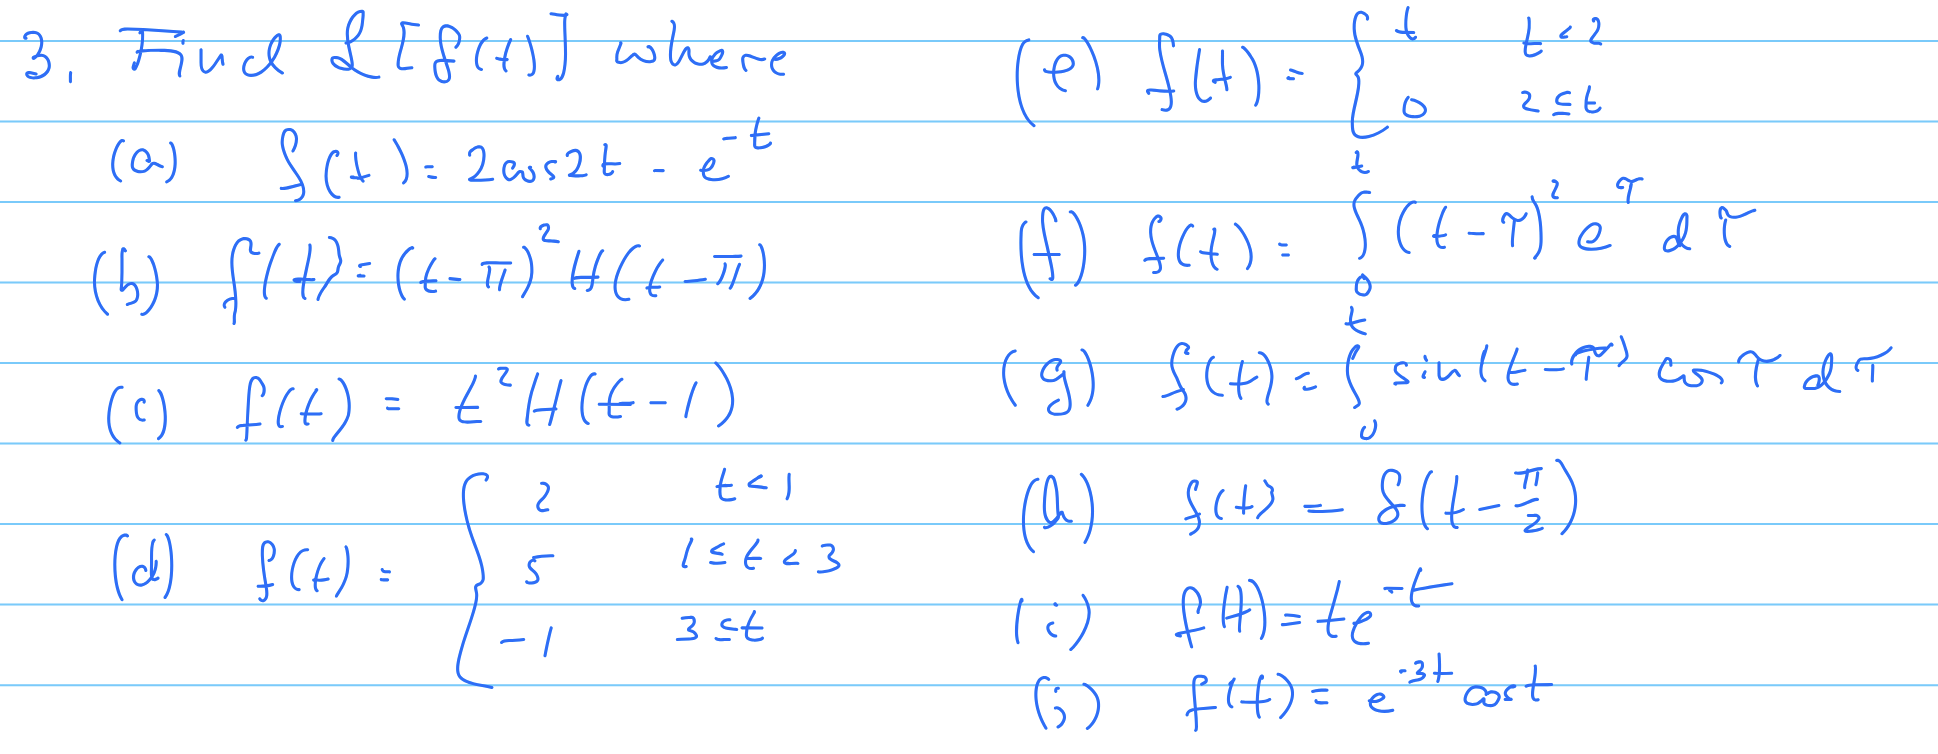 3. Find ℒ[f(t)] where
(a) f(t) = 2cos2t - e^{-t}
(b) f(t) = (t-π)^2 H(t-π)
(c) f(t) = t^2 H(t-1)
(d) f(t) = { 2 t < 1
5 1 ≤ t < 3
-1 3 ≤ t
(e) f(t) = { t t < 2
0 2 ≤ t
(f) f(t) = ∫_0^t (t-τ)^2 e^τ dτ
(g) f(t) = ∫_0^t sin(t-τ) cos τ dτ
(h) f(t) = δ(t - π/2)
(i) f(t) = te^{-t}
(j) f(t) = e^{-3t} cost